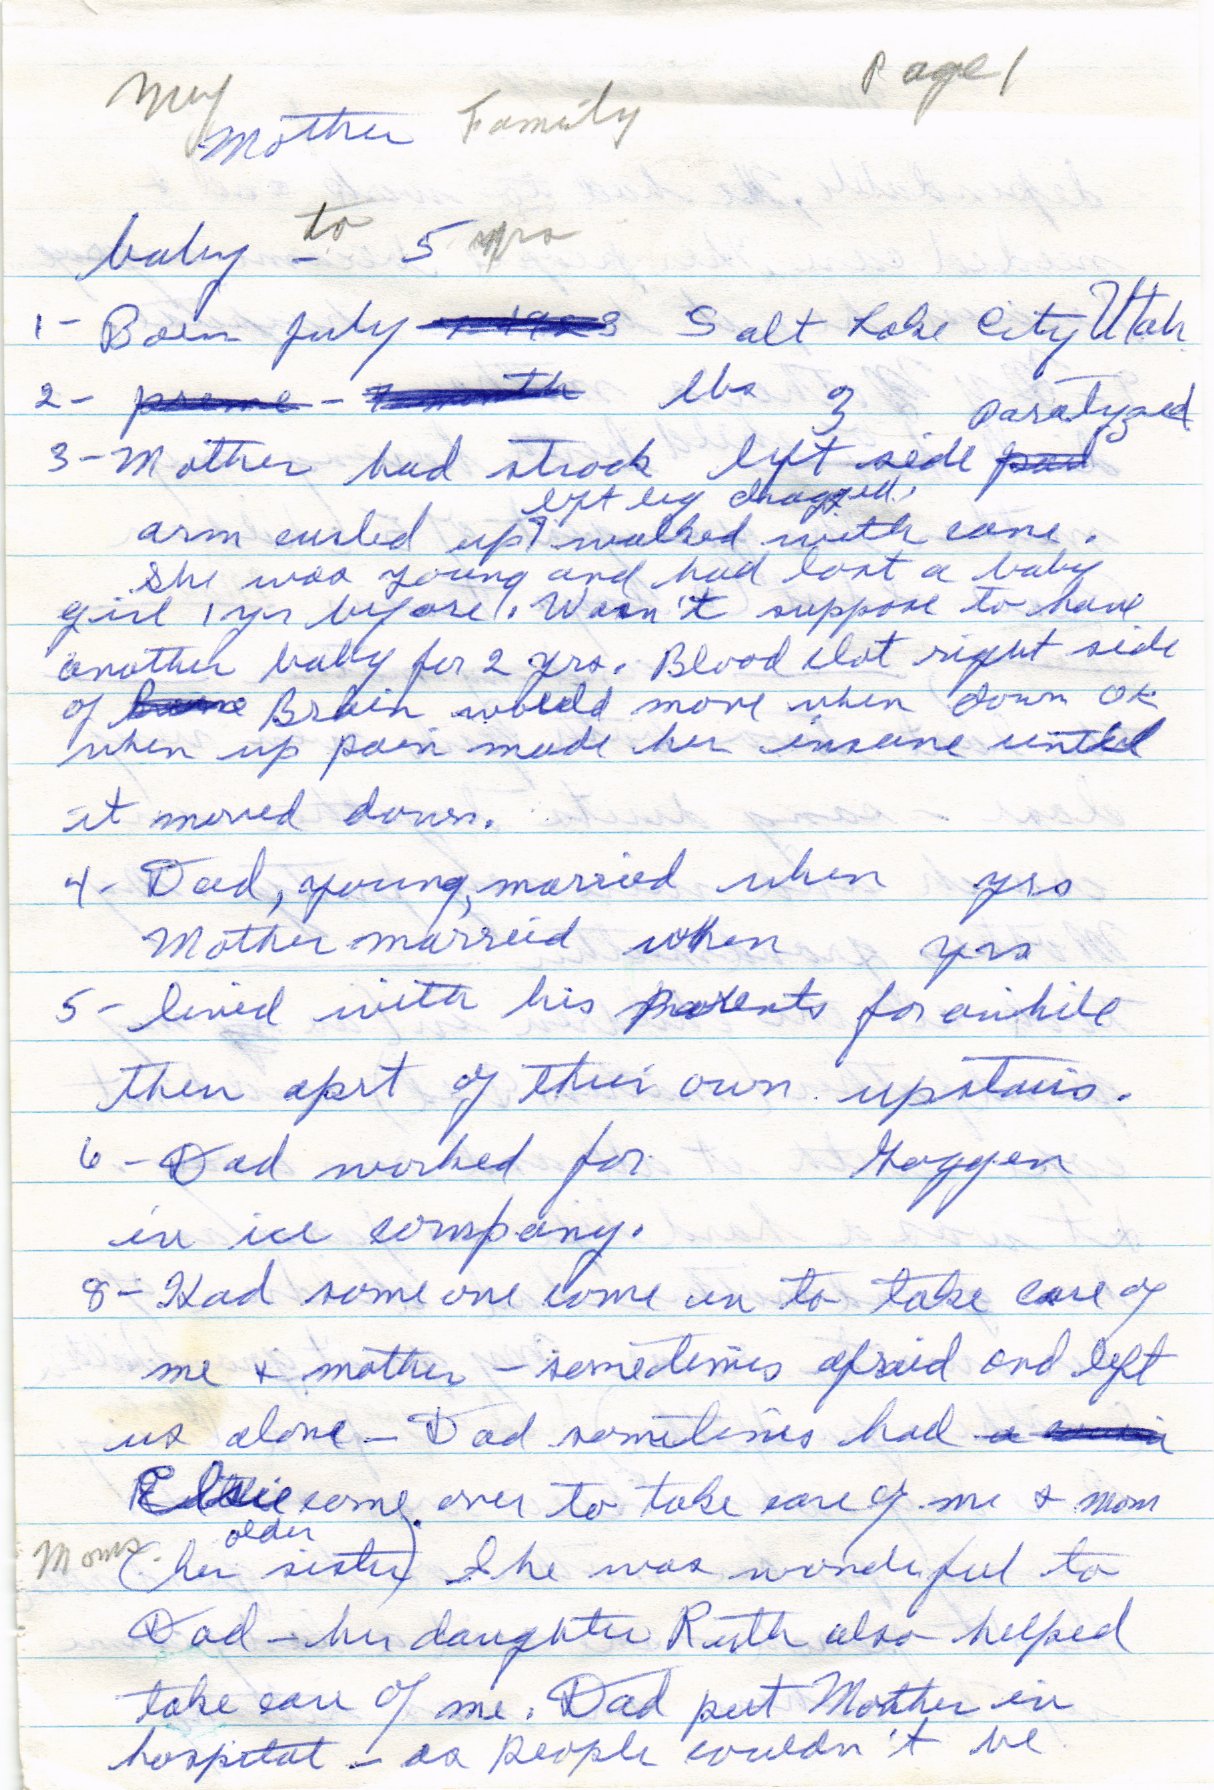 Page 1
My
Mother Family
baby - to 5 yrs
1- Born July 1923 Salt Lake City Utah
2- preme - 7 month lbs 3
3- Mother had strock left side par paralyzed
left leg dragged.
arm curled up walked with cane.
She was young and had lost a baby
girl 1 yr before. Wasn't suppose to have
another baby for 2 yrs. Blood clot right side
of Brain would move when down OK
when up pain made her insane until
it moved down.
4- Dad, young, married when yrs
Mother married when yrs
5- lived with his Parents for awhile
then aprt of their own upstairs.
6- Dad worked for Goggen
in ice company.
8- Had some one come in to take care of
me & mother - sometimes afraid and left
us alone - Dad sometimes had a
Elsie come over to take care of me & Mom
Moms (her older sister). She was wonderful to
Dad - her daughter Ruth also helped
take care of me. Dad put Mother in
hospital - as people couldn't be